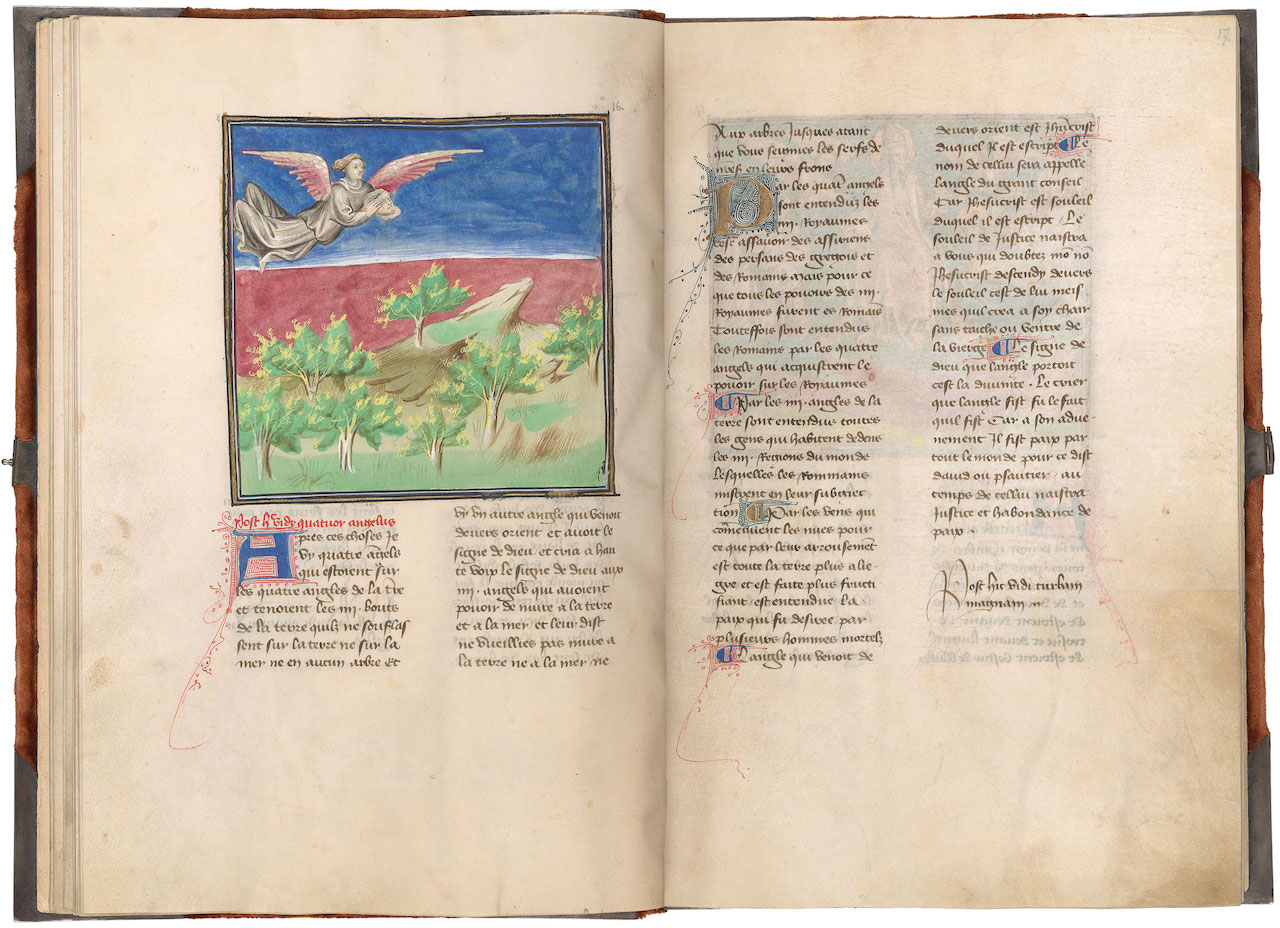 16.
Post h vidy quatuor angelus
Apres ces choses Je
vy quatre angels
qui estoient sur
les quatre angles de la tre
et tenoient les iiii. bouts
de la terre quilz ne souflas
sent sur la terre ne sur la
mer ne en aucun arbre Et
vy vn autre angle qui venoit
devers orient et avoit le
signe de dieu et cria a hau
te voix le signe de dieu aux
iiii. angels qui avoient
pouoir de nuire a la terre
et a la mer et leur dist
ne vueillies pas nuire a
la terre ne a la mer ne
17
Aux arbres Jusques atant
que nous seignies les serfs de
en leurs frons
Par les quatre angels
sont entenduz les
iiii. Royaumes
cest assavoir des assiriens
des persans des gregois et
des Romains Mais pour ce
que tous les pouoirs des iiii.
Royaumes furent es Romais
Touteffois sont entendus
les Romains par les quatre
angels qui acquistrent le
pouoir sur les Royaumes
Par les iiii. angles de la
terre sont entendus toutes
les gens qui habitent dedens
les iiii. Regions du monde
Lesquelles les Rommains
mistrent en leur subiect
tion Par les vens qui
les nues pour
ce que par leur arousement
est toute la terre plus ale
gre et est faite plus fructi
fiant est entendue la
paix qui fu desiree par
plusieurs hommes mortelz
Langle qui venoit de
devers orient est Jhucrist
duquel Il est escript Le
nom de cellui sera appelle
langle du grant conseil
Car Jhesucrist est souleil
duquel il est escript Le
souleil de Justice naistra
a vous qui doubtez mon nō
Jhesucrist descendy devers
le souleil cest de lui meis
mes qui crea a soy chair
sans taiche ou ventre de
la vierge Le signe de
dieu que langle portoit
cest la divinite . Le crier
que langle fist fu le fait
quil fist Car a son adve-
nement Il fist paix par
tout le monde pour ce dist
david ou psautier . au
temps de cellui naistra
Justice et habondance de
paix .
Post hec vidi turbam
magnam